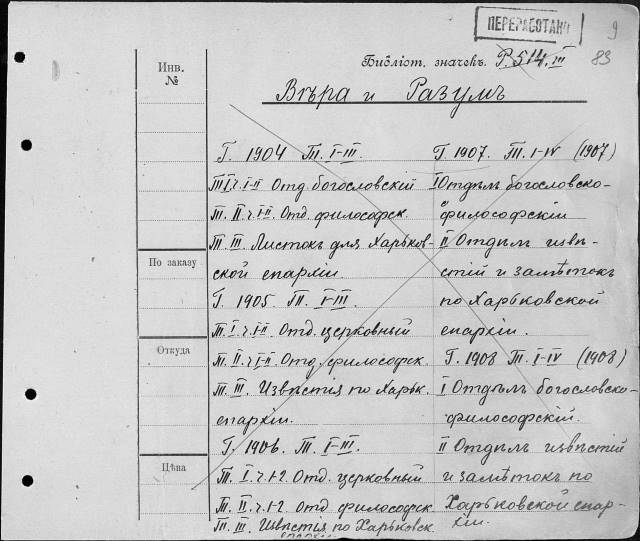 ПЕРЕРАБОТАНО
9
83
Библіот. значекъ. Р.514.III
Инв.
№
Вѣра и Разумъ
Г. 1904 Т.Т. I-III.
Т.I ч.I-II Отд. богословскій
Т. II. ч.I-II. Отд. философск.
Т. III. Листокъ для Харьков-
ской епархіи.
Г. 1905 Т.Т. I-III.
Т. I. ч.I-II. Отд. церковный
Т. II. ч.I-II. Отд. философск.
Т. III. Извѣстія по Харьк.
епархіи.
Г. 1906. Т. I-III.
Т. I. ч.1-2. Отд. церковный
Т. II. ч.1-2. Отд. философск
Т. III. Извѣстія по Харьковск.
епархіи
Г. 1907. Т.Т. I-IV (1907)
I Отдѣлъ богословско-
философскій
II Отдѣлъ извѣ-
стій и замѣтокъ
по Харьковской
епархіи.
Г. 1908 Т. I-IV (1908)
I Отдѣлъ богословско-
философскій.
II Отдѣлъ извѣстій
и замѣтокъ по
Харьковской епар-
хіи.
По заказу
Откуда
Цѣна